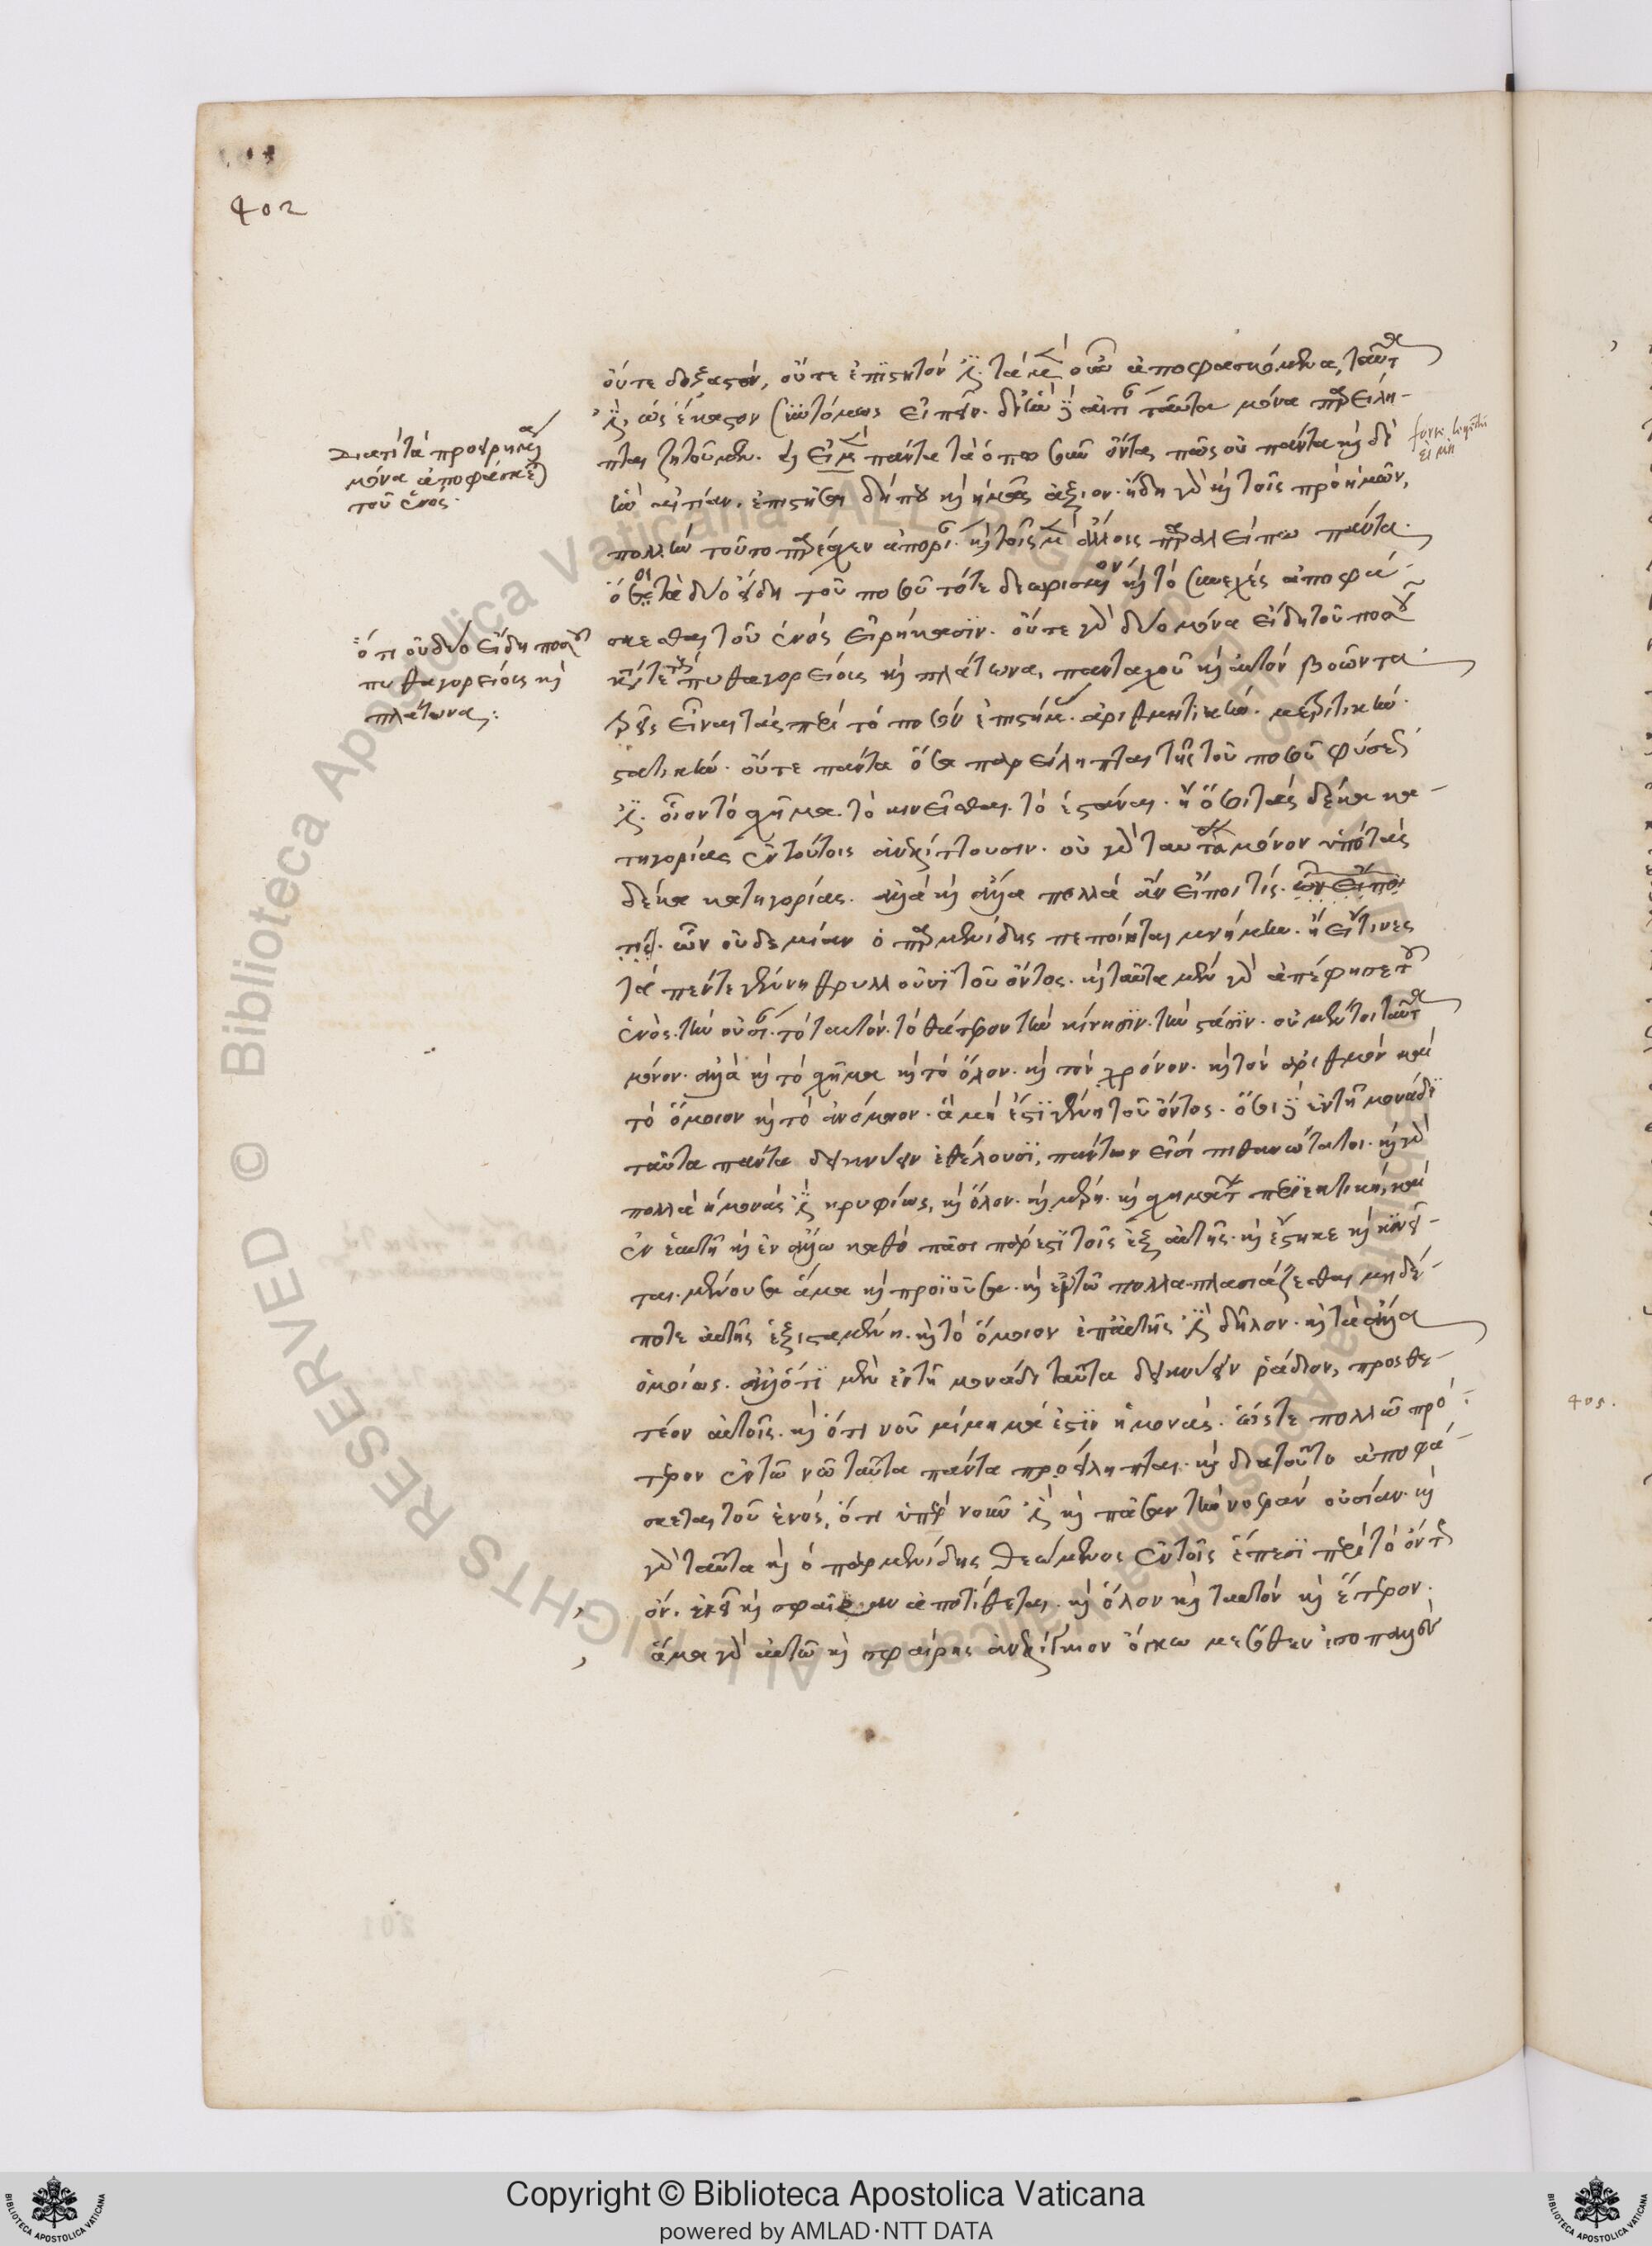 402
οὔτε δοξαστόν, οὔτε ἐπιστητόν ἐστι. τὰ μὲν οὖν ἀποφασκόμενα, ταῦτά
ἐστιν, ὡς ἕκαστον συντόμως εἰπεῖν. δι' ἣν δὲ αἰτίαν ταῦτα μόνα παρείλη-
πται ζητοῦμεν. καὶ εἰ μὲν πάντα τὰ ὁπωσοῦν ὄντα, πῶς οὐ πάντα καὶ δι'
ἣν αἰτίαν, ἐπιστῆσαι δήπου καὶ ἡμᾶς ἄξιον. ἤδη γὰρ καὶ τοῖς πρὸ ἡμῶν,
πολλὴν τοῦτο παρέσχεν ἀπορίαν. καὶ τοῖς μὲν ἄλλοις παραλείπω πάντα.
ὅσοι τὰ δύο εἴδη τοῦ ποσοῦ τό τε διωρισμένον καὶ τὸ συνεχὲς ἀποφά-
σκεσθαι τοῦ ἑνὸς εἰρήκασιν. οὔτε γὰρ δύο μόνα εἴδη τοῦ ποσοῦ
κατά τε τοὺς πυθαγορείους καὶ πλάτωνα, πανταχοῦ καὶ αὐτὸν βοῶντα
τρεῖς εἶναι τὰς περὶ τὸ ποσὸν ἐπιστήμας. ἀριθμητικὴν. μετρητικὴν.
στατικὴν. οὔτε πάντα ὅσα παρείληπται τῆς τοῦ ποσοῦ φύσεώς
ἐστιν. οἷον τὸ σχῆμα. τὸ κινεῖσθαι. τὸ ἑστάναι. ἢ ὅσοι τὰς δέκα κα-
τηγορίας ἐν τούτοις ἀνευρίσκουσιν. οὐ γὰρ ταῦτα μόνον ὑπὸ τὰς
δέκα κατηγορίας. ἀλλὰ καὶ ἄλλα πολλὰ ἂν εἴποι τίς. ὧν εἴποι
τις. ὧν οὐδεμίαν ὁ παρμενίδης πεποίηται μνήμην. ἢ εἴ τινες
τὰ πέντε γένη θρυλλοῦσι τοῦ ὄντος. καὶ ταῦτα μὲν γὰρ ἀπέφησε τοῦ
ἑνὸς. τὴν οὐσίαν. τὸ ταυτόν. τὸ θάτερον. τὴν κίνησιν. τὴν στάσιν. οὐ μέντοι ταῦτα
μόνον. ἀλλὰ καὶ τὸ σχῆμα καὶ τὸ ὅλον. καὶ τὸν χρόνον. καὶ τὸν ἀριθμὸν καὶ
τὸ ὅμοιον καὶ τὸ ἀνόμοιον. ἃ μή ἐστι γένη τοῦ ὄντος. ὅσοι δὲ ἐν τῇ μονάδι
ταῦτα πάντα δεικνύειν ἐθέλουσι, πάντων εἰσὶ πιθανώτατοι. καὶ γὰρ
πολλὰ ἡ μονάς ἐστι κρυφίως, καὶ ὅλον. καὶ μέρη. καὶ σχημάτων περιεκτική, καὶ
ἐν ἑαυτῇ καὶ ἐν ἄλλω καθὸ πᾶσι πάρεστι τοῖς ἐξ αὐτῆς. καὶ ἕστηκε καὶ κινεῖ-
ται. μένουσα ἅμα καὶ προϊοῦσα. καὶ ἐν τῶ πολλαπλασιάζεσθαι μηδέ-
ποτε αὐτῆς ἐξισταμένη. καὶ τὸ ὅμοιον ἐπ' αὐτῆς ἐστι δῆλον. καὶ τὰ ἄλλα
ὁμοίως. ἀλλ' ὅτι μὲν ἐν τῇ μονάδι ταῦτα δεικνύειν ῥάδιον, προσθε-
τέον αὐτοῖς. καὶ ὅτι νοῦ μίμημά ἐστιν ἡ μονὰς. ὥστε πολλῶ πρό-
τερον ἐν τῶ νῶ ταῦτα πάντα προείληπται. καὶ διὰ τοῦτο ἀποφά-
σκεται τοῦ ἑνὸς, ὅτι ὑπὲρ νοῦν ἐστι καὶ πᾶσαν τὴν νοερὰν οὐσίαν. καὶ
γὰρ ταῦτα καὶ ὁ παρμενίδης θεώμενος ἐν τοῖς ἔπεσι περὶ τὸ ὄντως
ὄν. ἐκεῖ καὶ σφαῖραν ἀποτίθεται. καὶ ὅλον καὶ ταυτὸν καὶ ἕτερον.
ἅμα γὰρ αὐτῶ καὶ σφαίρης ἐναλίγκιον ὄγκω μεσόθεν ἰσοπαλὲς
διατί τὰ προειρημένα
μόνα ἀποφάσκεται
τοῦ ἑνός.
ὅτι οὐ δύο εἴδη ποσοῦ
πυθαγορείοις καὶ
πλάτωνα:
εἰ μὴ
405.
Copyright © Biblioteca Apostolica Vaticana
powered by AMLAD·NTT DATA
© Biblioteca Apostolica Vaticana ALL RIGHTS RESERVED
BIBLIOTECA APOSTOLICA VATICANA
BIBLIOTECA APOSTOLICA VATICANA